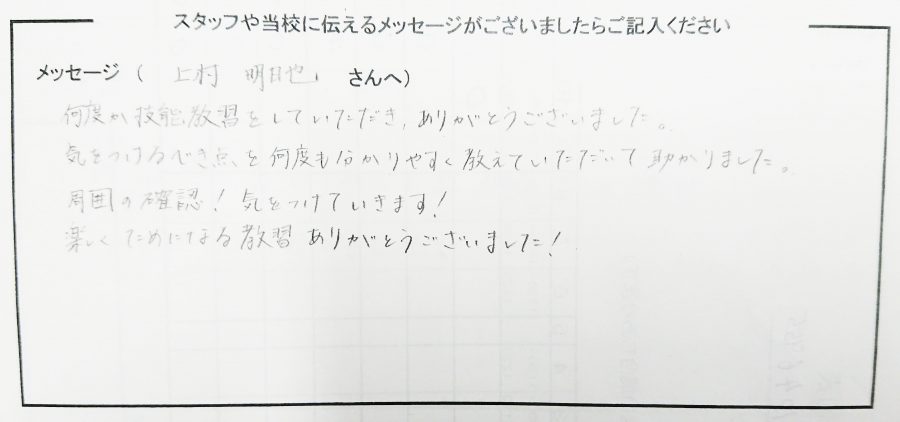 スタッフや当校に伝えるメッセージがございましたらご記入ください
メッセージ ( 上村 明日也 さんへ)
何度か技能教習をしていただき、ありがとうございました。
気をつけるべき点を何度も分かりやすく教えていただいて助かりました。
周囲の確認！気をつけていきます！
楽しくためになる教習ありがとうございました！